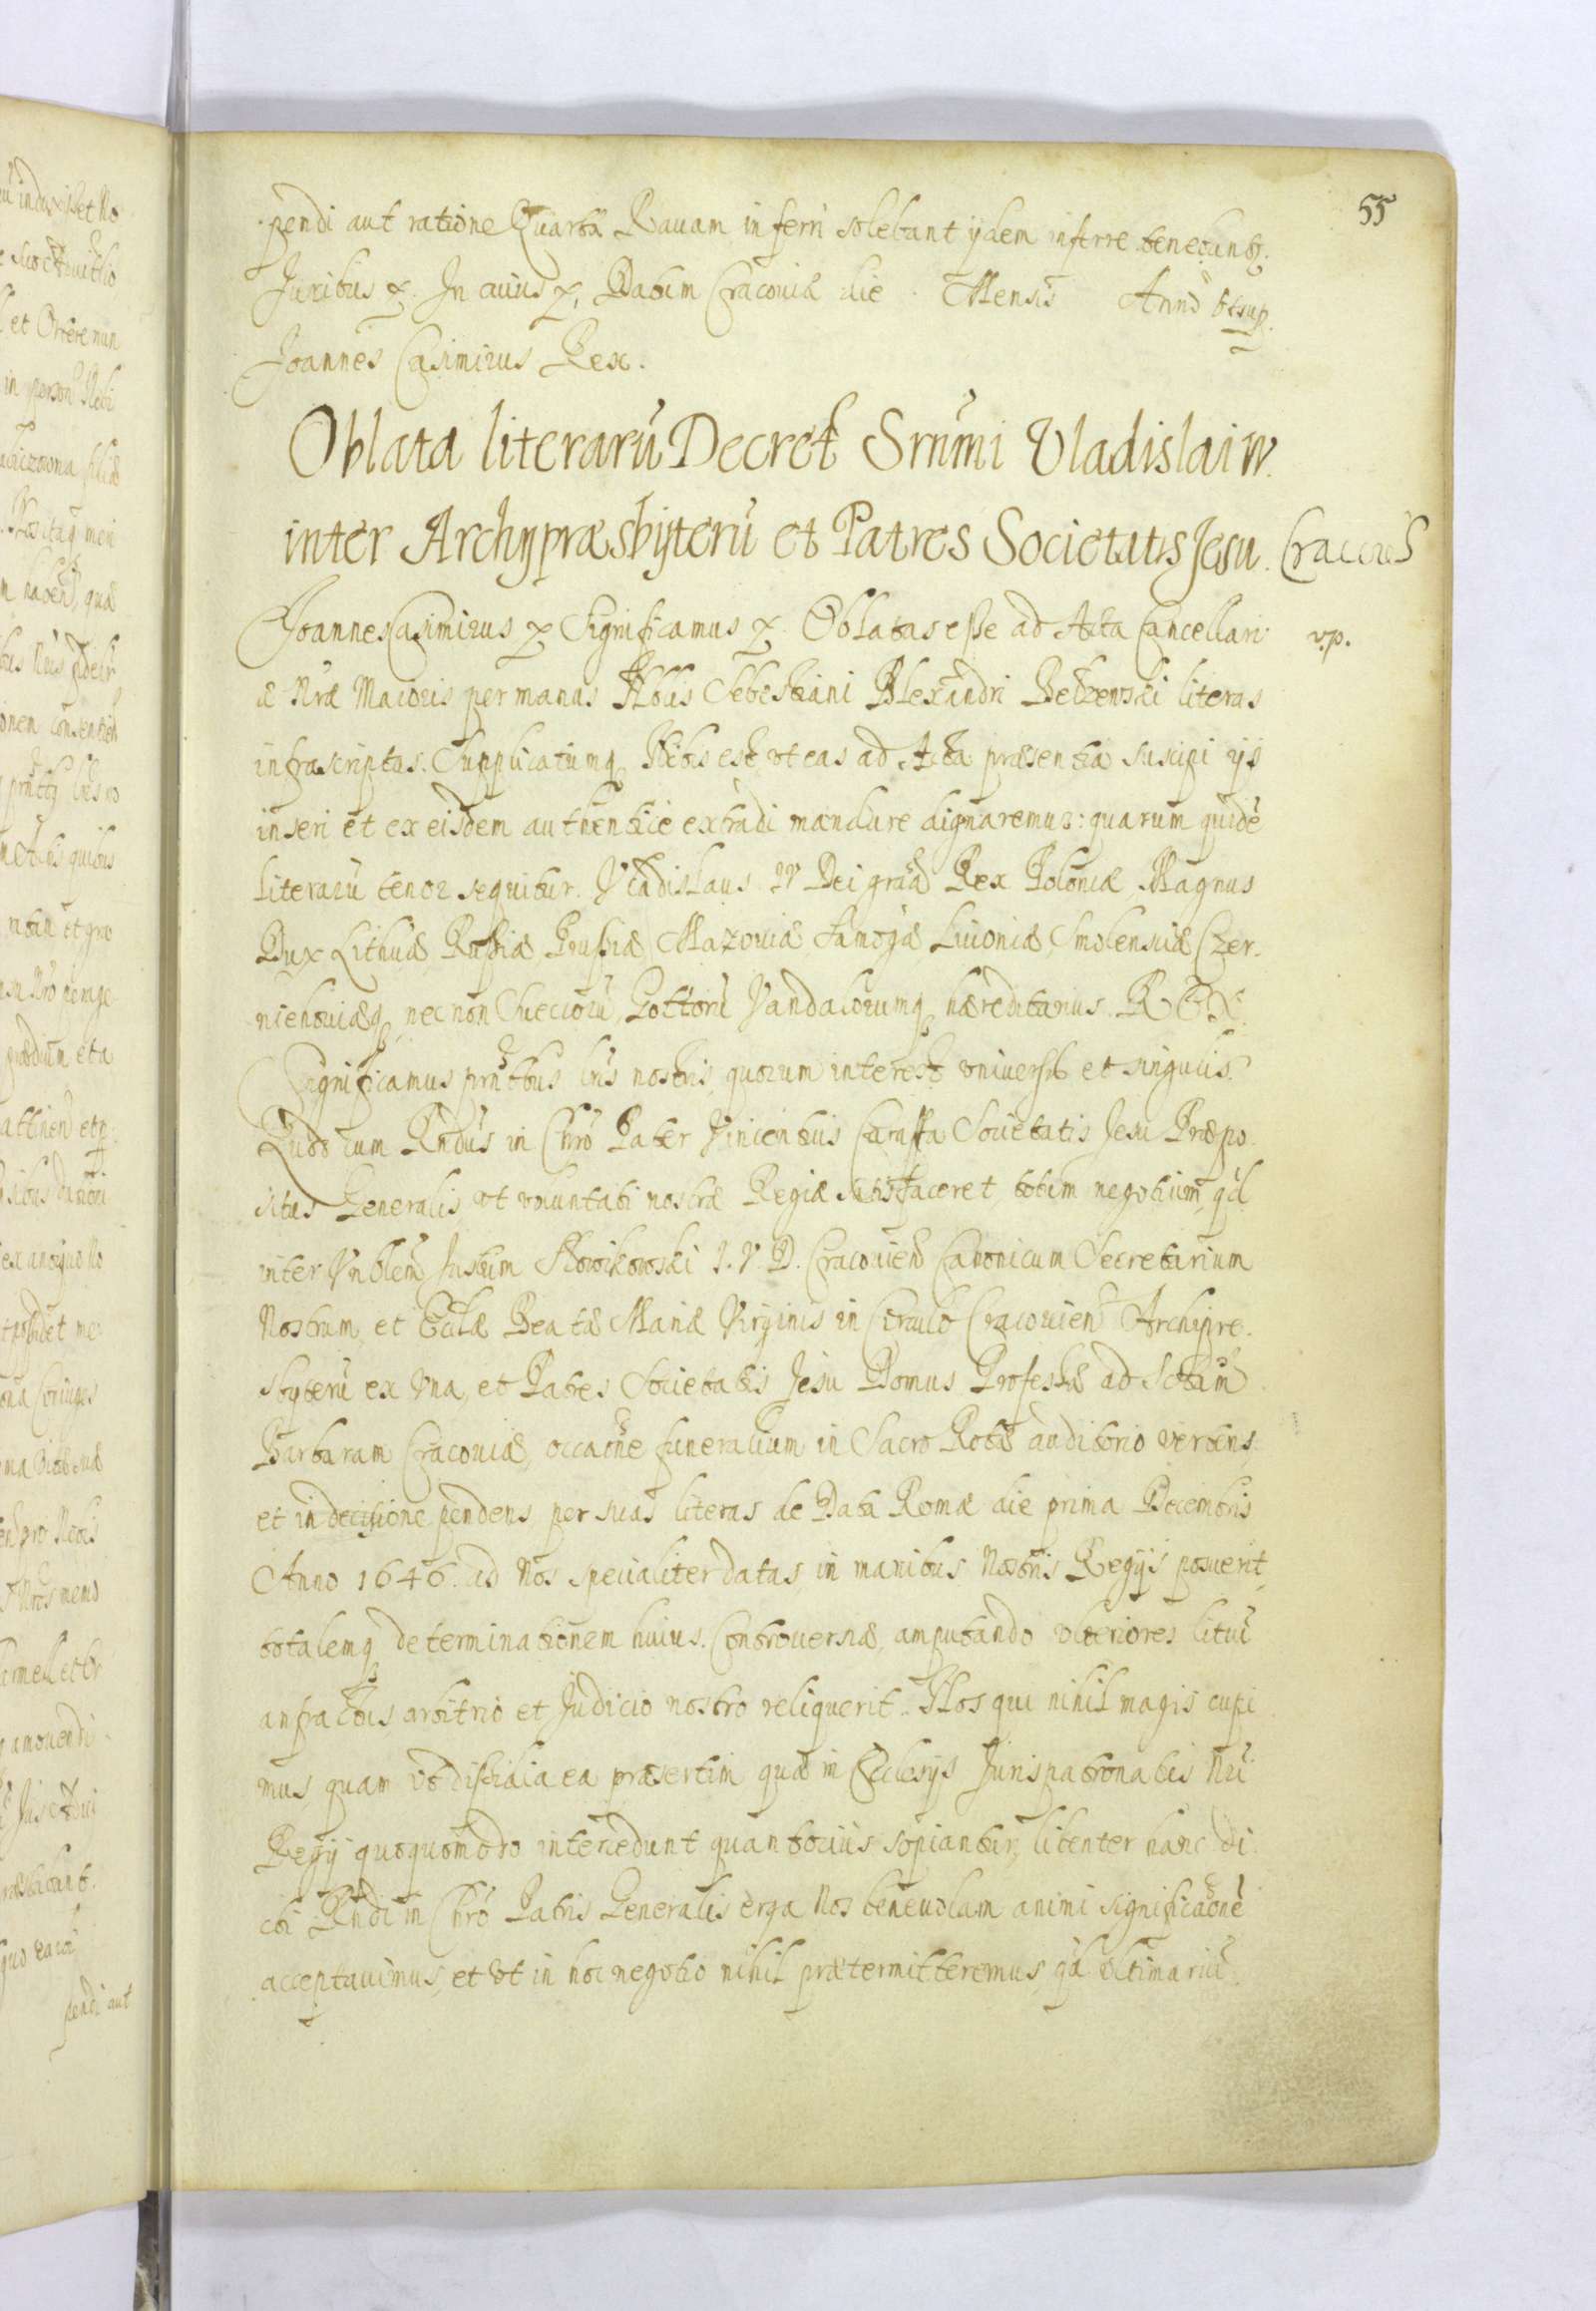 55
pendi aut ratione Quartæ Ravam inferri solebant ijdem inferre tenebunt.
Juribus &. In cuius &. Datum Cracoviæ die Mensis Anno utsup.
Joannes Casimirus Rex.
Oblata literarū Decreti Srnūmi Vladislai IV.
inter Archypræsbyterū et Patres Societatis Jesu. Craccoviens
Joannes Casimirus & Significamus &. Oblatas esse ad Acta Cancellari v.p.
æ Nræ Maioris per manus Nblis Sebestiani Alexandri literas
infrascriptas. Supplicatumq Nobis est vt eas ad Acta præsentia suscipi ijs
inseri et ex eisdem authentice extradi mandare dignaremur: quarum quidē
literarū tenor sequitur. Vladislaus IV Dei gratiā Rex Poloniæ, Magnus
Dux Lithuæ, Russiæ, Prussiæ, Mazoviæ, Samogæ Livoniæ, Smolensciæ Czer-
niehoviæq, nec non Suecorū, Gottorū Vandalorumq hæreditarius REX.
Significamus prntbus lris nostris, quorum interest vniversis et singulis.
Quod cum Rndus in Chro Pater Vincentius Caraffa Societatis Jesu Præpo-
situs Generalis, vt voluntati nostræ Regiæ satisfaceret totum negotium, qd
inter Vnblem Justum Słowikowski J.V.D. Cracovien Canonicum Secretarium
Nostrum, et Ecclæ Beatæ Mariæ Virginis in Circulo Cracovien Archipre-
sbyterū ex Vna, et Patres Societatis Jesu Domus Professæ ad Sctam
Barbaram Cracoviæ, occaone funeralium in Sacro Rotæ auditorio vertens,
et indecisione pendens per suas literas de Data Romæ die prima Decembris
Anno 1646. ad Nos specialiter datas, in manibus Nostris Regijs posuerit,
totalemq determinationem huius Controversiæ, amputando vlteriores litiū
anfractus, arbitrio et Judicio nostro reliquerit. Nos qui nihil magis cupi
mus quam vt dissidia ea præsertim quæ in Ecclesijs Jurispatronatus Nri
Regij quoquomodo intercedunt quantocius sopiantur, libenter hanc di-
cti Rndi in Chro Patris Generalis erga Nos benevolam animi significaonē
acceptavimus, et vt in hoc negotio nihil prætermitteremus, qd vltimariū